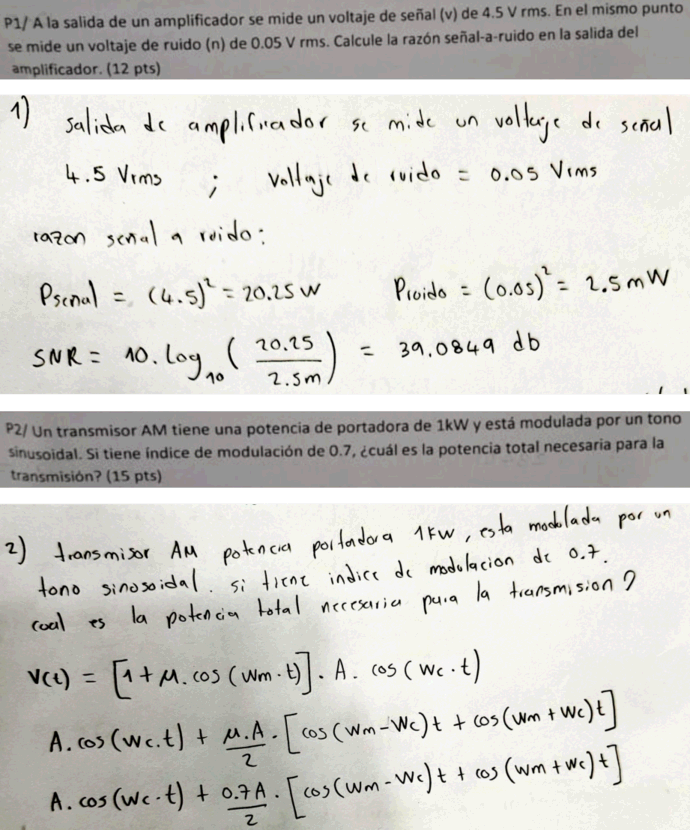 P1/ A la salida de un amplificador se mide un voltaje de señal (v) de 4.5 V rms. En el mismo punto
se mide un voltaje de ruido (n) de 0.05 V rms. Calcule la razón señal-a-ruido en la salida del
amplificador. (12 pts)
1) salida de amplificador se mide un voltaje de señal
4.5 Vrms ; Voltaje de ruido = 0.05 Vrms
razon senal a ruido:
Psenal = (4.5)² = 20.25 W Pruido = (0.05)² = 2.5 mW
SNR = 10. log₁₀ (20.25 / 2.5m) = 39.0849 db
P2/ Un transmisor AM tiene una potencia de portadora de 1kW y está modulada por un tono
sinusoidal. Si tiene índice de modulación de 0.7, ¿cuál es la potencia total necesaria para la
transmisión? (15 pts)
2) transmisor AM potencia portadora 1kW, esta modulada por un
tono sinosoidal. si tiene indice de modulacion de 0.7.
cual es la potencia total necesaria para la transmision?
V(t) = [1 + μ. cos (wm. t)]. A. cos (wc. t)
A. cos (wc. t) + μ.A/2 . [cos (wm - wc)t + cos (wm + wc)t]
A. cos (wc. t) + 0.7A/2 . [cos (wm - wc)t + cos (wm + wc)t]